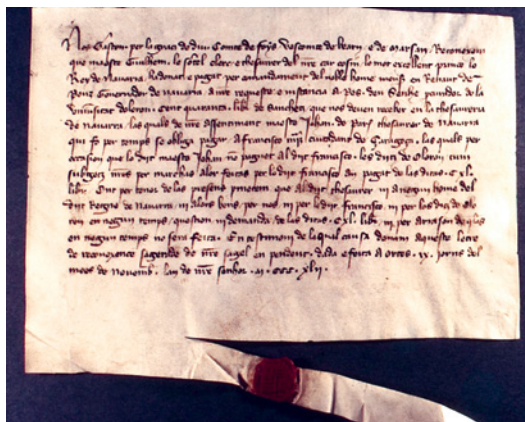 Nos Gaston per la graci de diu Comte de foyxs Vescomte de bearn e de Marsan Reconexem
que maeste Guilhem lo soterl clerc e thesaurer del nre car cosin lo mot excellent princep lo
Rey de Navarra ha donat e pagat per comandament del noble home mons en Renaut de
Pons Governador de Navarra a nre requeste e instancia a P. de Senhe de la
universitat doloron Cent quaranta libr de sanchetz que nos devem receber en la thesaureria
de Navarra las quals de nre assentiment maeste Johan de Paris thesaurer de Navarra
qui fo per temps se obliga pagar a francisco ciutadan de saragoça las quals per
occasion que lo dit maeste Johan no paguet al dit francisco los ditz de oloron cum
subgetz nres per marcha fortz per lo dit francisco an pagat de las dites C XL
libr On per tenor de las presens prometem que al dit thesaurer ni a negun home del
dit Regne de Navarra ni a lors bens per nos ni per lo dit francisco ni per los ditz de olo
ron en negun temps question ni demande de las dites C XL libr ni per arrason de quas
en negun temps no sera feyta En testimoni de la qual causa donam aqueste letre
de reconexence sagerade de nre sagel en pendent dada e feyta a Ortes IX jorns del
mees de Novemb lan de nre senhor M CCC XLII